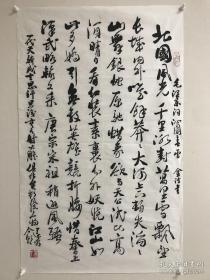 北國風光千里冰封萬里雪飘望
長城内外惟餘莽莽大河上下頓失滔滔
山舞銀蛇原驰蜡象欲与天公试比高
须晴日看红装素裹分外妖娆江山如
此多娇引無数英雄競折腰惜秦皇
漢武略输文采唐宗宋祖稍逊風騷
一代天骄成吉思汗只识弯弓射大雕俱往矣数風流人物还看今朝
毛泽東词沁園春雪